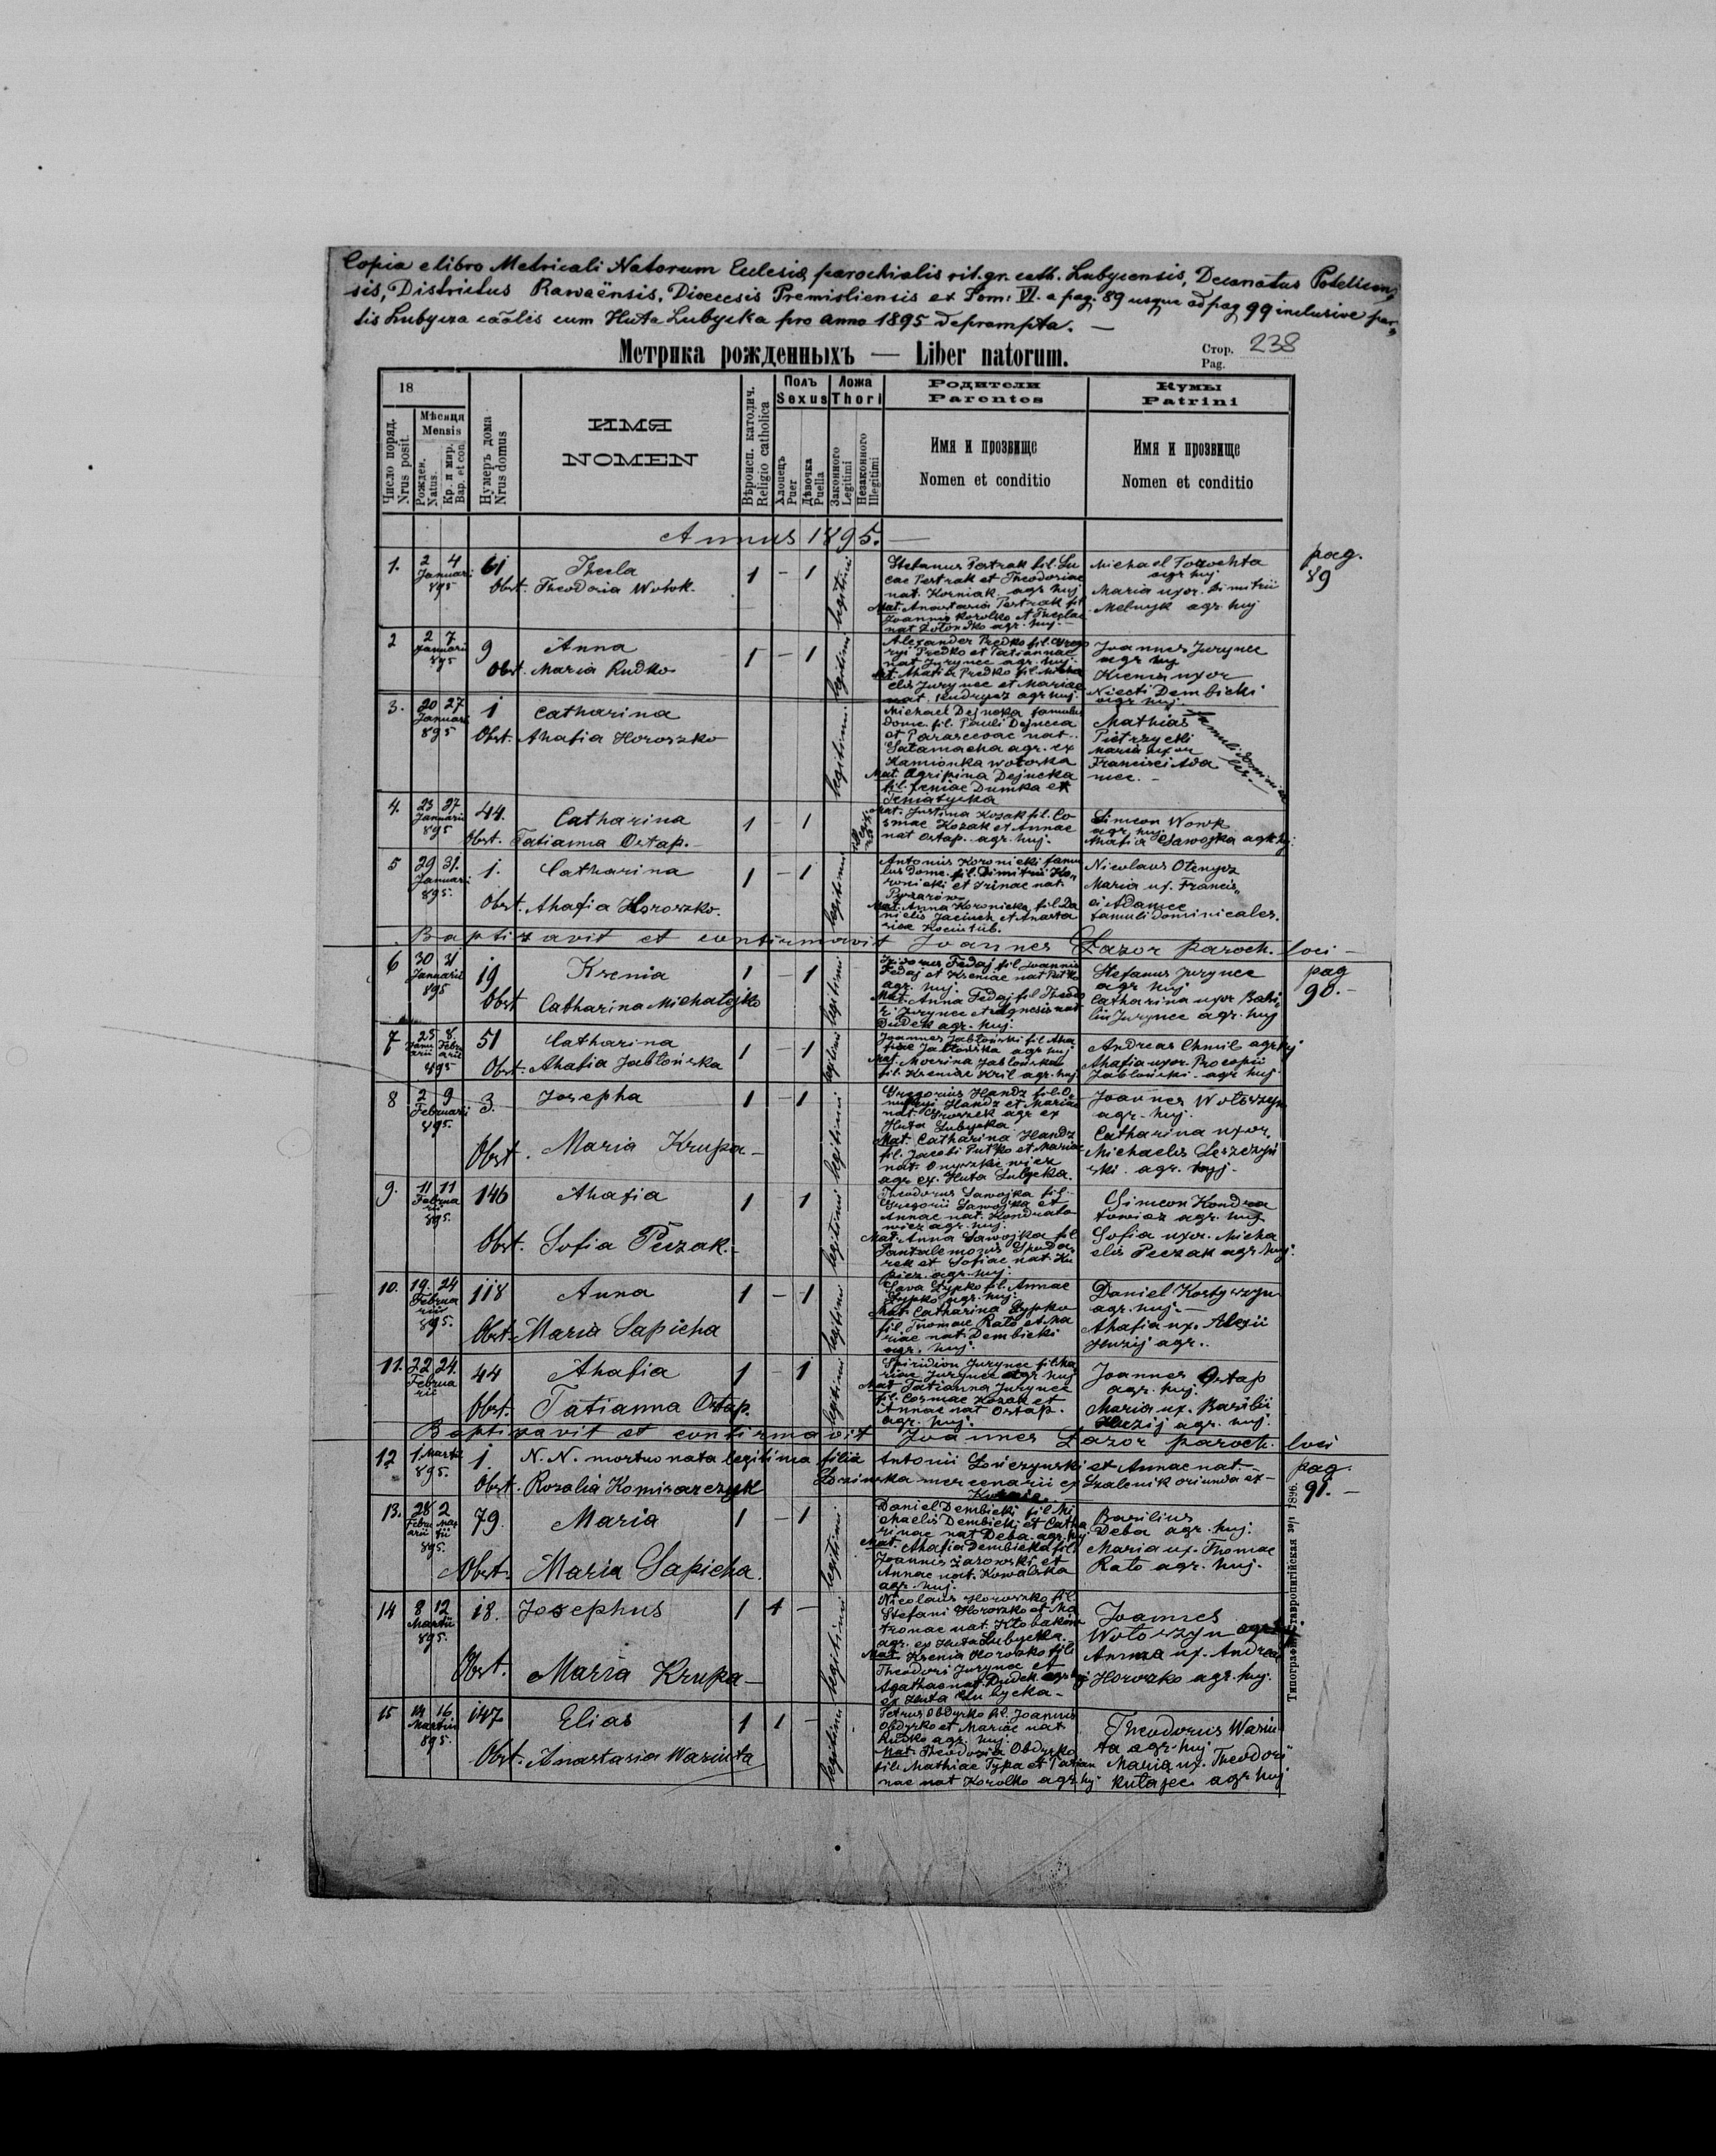 Copia e libro Metricali Natorum Eclesiæ parochialis rit. gr. cath. Lubycensis, Decanatus Potelicen,
sis, Districtus Rawaënsis, Dioecesis Premisliensis ex Tom: VI. a pag. 89 usque ad pag 99 inclusive par,
tis Lubycza cããlis cum Huta Lubycka pro anno 1895 deprompta. —
Метрика рожденныхъ — Liber natorum.
Стор. 238
Pag.
18
Число поряд.
Nrus posit.
Мѣсяця
Mensis
Рожден.
Natus.
Кр. и мир.
Bap. et con.
Нумеръ дома
Nrus domus
ИМЯ
NOMEN
Вѣроисп. католич.
Religio catholica
Полъ
Sexus
Хлопець
Puer
Дѣвочка
Puella
Ложа
Thori
Законного
Legitimi
Незаконного
Illegitimi
Родители
Parentes
Имя и прозвище
Nomen et conditio
Кумы
Patrini
Имя и прозвище
Nomen et conditio
Annus 1895. —
pag.
89
1. 2 4 Januari 895 61 Thecla 1 - 1 legitimi
Obst. Theodoria Wołok.
Stefanus Pestrak fil. Lu
cae Pestrak et Theodoriae
nat. Korniak agr. huj
Mat. Anastasia Pestrak fil
Joannis Korolko et Theclae
nat Zołondko agr. huj. -
Michael Torochta
agr huj
Maria uxor. Dimitrii
Melnyk agr. huj
2 2 7 Januarii 895 9 Anna 1 - 1 legitimi
Obst. Maria Rudko
Alexander Predko fil. Grego
ryi Predko et Tatiannae
nat Jurynec agr. huj.
Mat. Ahafia Predko fil. Micha
elis Jurynec et Mariae
nat. Kudrycz agr huj.
Joannes Jurynec
agr huj
Xenia uxor
Niceti Dembicki
agr. huj.
3. 20 27 Januari 895 1 Catharina legitimi
Obst. Ahafia Horoszko
Michael Dejneka famulus
domi. fil. Pauli Dejneca
et Parascevae nat.
Sałamacha agr. ex
Kamionka wołoska
Mat. Agripina Dejneka
fil. Xeniae Dumka et
Teniatyska
Mathias
Pietrzycki
Maria uxor
Francisci Ada
mec. -
famuli dominicales.
4. 23 27 Januarii 895 44. Catharina 1 - 1
Obst. Tatianna Ostap.
Mat. Justina Kozak fil. Co
smae Kozak et Annae
nat Ostap. agr. huj.
Simeon Wowk
agr. huj.
Ahafia Sawojka agr. huj.
5 29 31. Januari 895. 1. Catharina 1 - 1 legitimi
Obst. Ahafia Horoszko.
Antonius Koronicki famu
lus domi. fil. Dimitrii Ko,
ronicki et Irinae nat.
Mat. Anna Koronicka fil. Da
nielis Jaciuch et Anasta
siae Kociulub.
Nicolaus
Maria ux. Francis,
ci Adamec
famuli dominicales.
Baptizavit et confirmavit Joannes Łazor paroch. loci -
pag
90. -
6 30 31 Januarii 895 19 Ksenia 1 - 1 legitimi
Obst Catharina Michałejko
Isidorus Fedaj fil Joannis
Fedaj et Kseniae nat Putko
agr. huj.
Mat. Anna Fedaj fil Theodo
ri Jurynec et Agnesis nat
Dudek agr. huj.
Stefanus Jurynec
agr huj
Catharina uxor Basi,
lii Jurynec agr. huj
7 25 Janu arii 8. Febru arii 895 51 Catharina 1 - 1 legitimi
Obst. Ahafia Jabłońska
Joannes Jabłoński fil Aha
fiae Jabłońska agr huj
Mat. Marina Jabłońska
fil. Kseniae Kril agr. huj
Andreas Chmil agr huj
Ahafia uxor. Procopii
Jabłoński. agr huj.
8 2 9 Februarii 895. 3. Josepha 1 - 1 legitimi
Obst. Maria Krupa -
Gregorius Handz fil. O,
nuphryi Handz et Mariae
nat. Groszek agr ex
Huta Lubycka
Mat. Catharina Handz
fil. Jacobi Putko et Mariae
nat. Onyszkiewicz
agr ex. Huta Lubycka.
Joannes Wołoszyn
agr. huj.
Catharina uxor.
Michaelis Leszczyń
ski. agr. huj. -
9. 11 11 Februa rii 895. 146 Ahafia 1 1 legitimi
Obst. Sofia Peczak. -
Theodorus Sawojka fil.
Gregorii Sawojka et
Annae nat. Kondrato
wicz agr. huj.
Mat. Anna Sawojka fil
rek et Sofiae nat. Ku
piez. agr. huj.
Simeon Kondra
towicz agr. huj
Sofia uxor. Micha
elis Peczak agr huj.
10. 19. 24 Februa rii 895. 118 Anna 1 - 1 legitimi
Obst. Maria Sapieha
Sava Łypko fil. Annae
Łypko agr. huj.
Mat. Catharina Łypko
fil. Thomae Rato et Ma
riae nat. Dembicki
agr. huj.
Daniel Kostyszyn
agr. huj. -
Ahafia ux. Alexii
Huzij agr..
11. 22 24. Februa rii 44 Ahafia 1 - 1 legitimi
Obst. Tatianna Ostap.
Spiridion Jurynec fil. Ma
riae Jurynec agr. huj
Mat. Tatianna Jurynec
fil. Cosmae Kozak et
Annae nat Ostap.
agr. huj.
Joannes Ostap
agr. huj.
Maria ux. Basilii
Huzij agr. huj.
Baptizavit et confirmavit Joannes Łazor paroch. loci
pag.
91. -
12 1 Martii 895. 1. N. N. mortuo nata legitima filia Antonii Łosczynski et Annae nat. -
Obst. Rozalia Komisarczyk mercenarii ex oriunda ex -
13. 28 Febru arii 2 Mar tii 895. 79. Maria 1 - 1 legitimi
Obst. Maria Sapieha.
Daniel Dembicki fil. Mi
chaelis Dembicki et Catha
rinae nat Deba. agr. huj
Mat. Ahafia Dembicka fil.
Joannis Żarowski et
Annae nat. Kowalska
agr. huj.
Basilius
Deba agr. huj.
Maria ux. Thomae
Rato agr. huj.
14 8 12 Martii 895. 18. Josephus 1 1 - legitimi
Obst. Maria Krupa -
Nicolaus Horoszko fil.
Stefani Horoszko et Ma
tronae nat.
agr. ex Huta Lubycka.
Mat. Ksenia Horoszko fil.
Theodori Jurynec et
Agathae nat. Dudek agr huj
ex Huta Lubycka -
Joannes
Wołoszyn agr huj
Anna ux. Andreae
Horoszko agr. huj.
15 14 16 Martii 895. 147 Elias 1 1 - legitimi
Obst. Anastasia Wasiuta
Petrus Obdyrko fil. Joannis
Obdyrko et Mariae nat
Rudko agr. huj.
Mat. Theodosia Obdyrko
fil. Mathiae Typa et Tatian
nae nat Korolko agr. huj
Theodorus Wasiu
ta agr. huj
Maria ux. Theodori
Kułajec agr huj
Типографія Ставропигійская 1896.